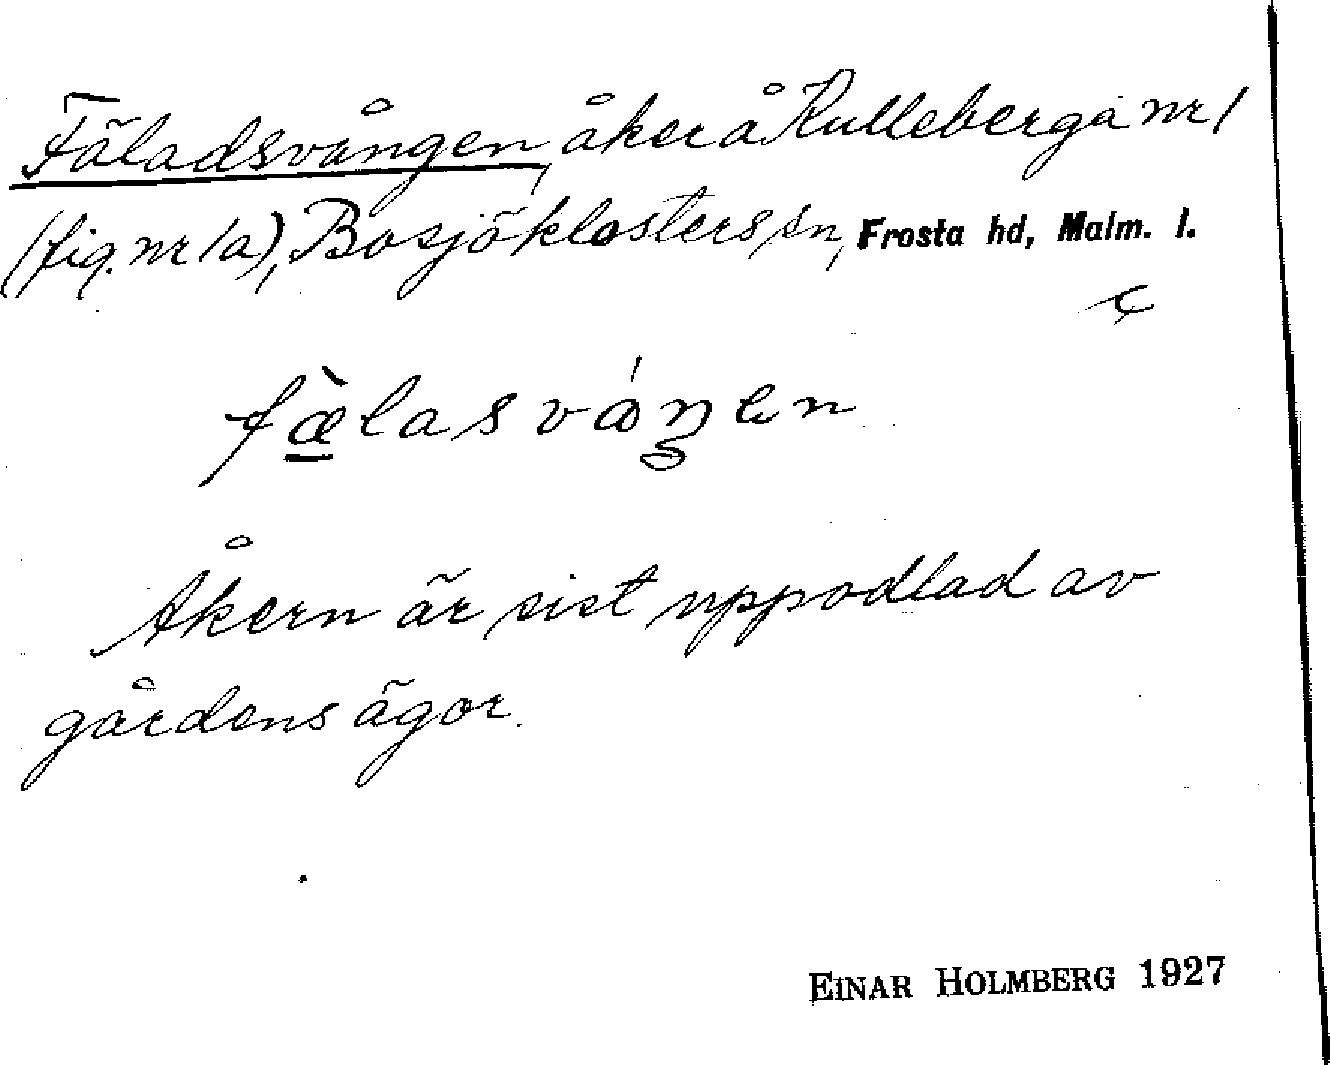 Fäladsvången, åker å Kulleberga nr 1
(fig. nr 1a), Bosjöklosters sn, Frosta hd, Malm. l.
fæ̀lasvåŋen
Åkern är sist uppodlad av
gårdens ägor.
EINAR HOLMBERG 1927